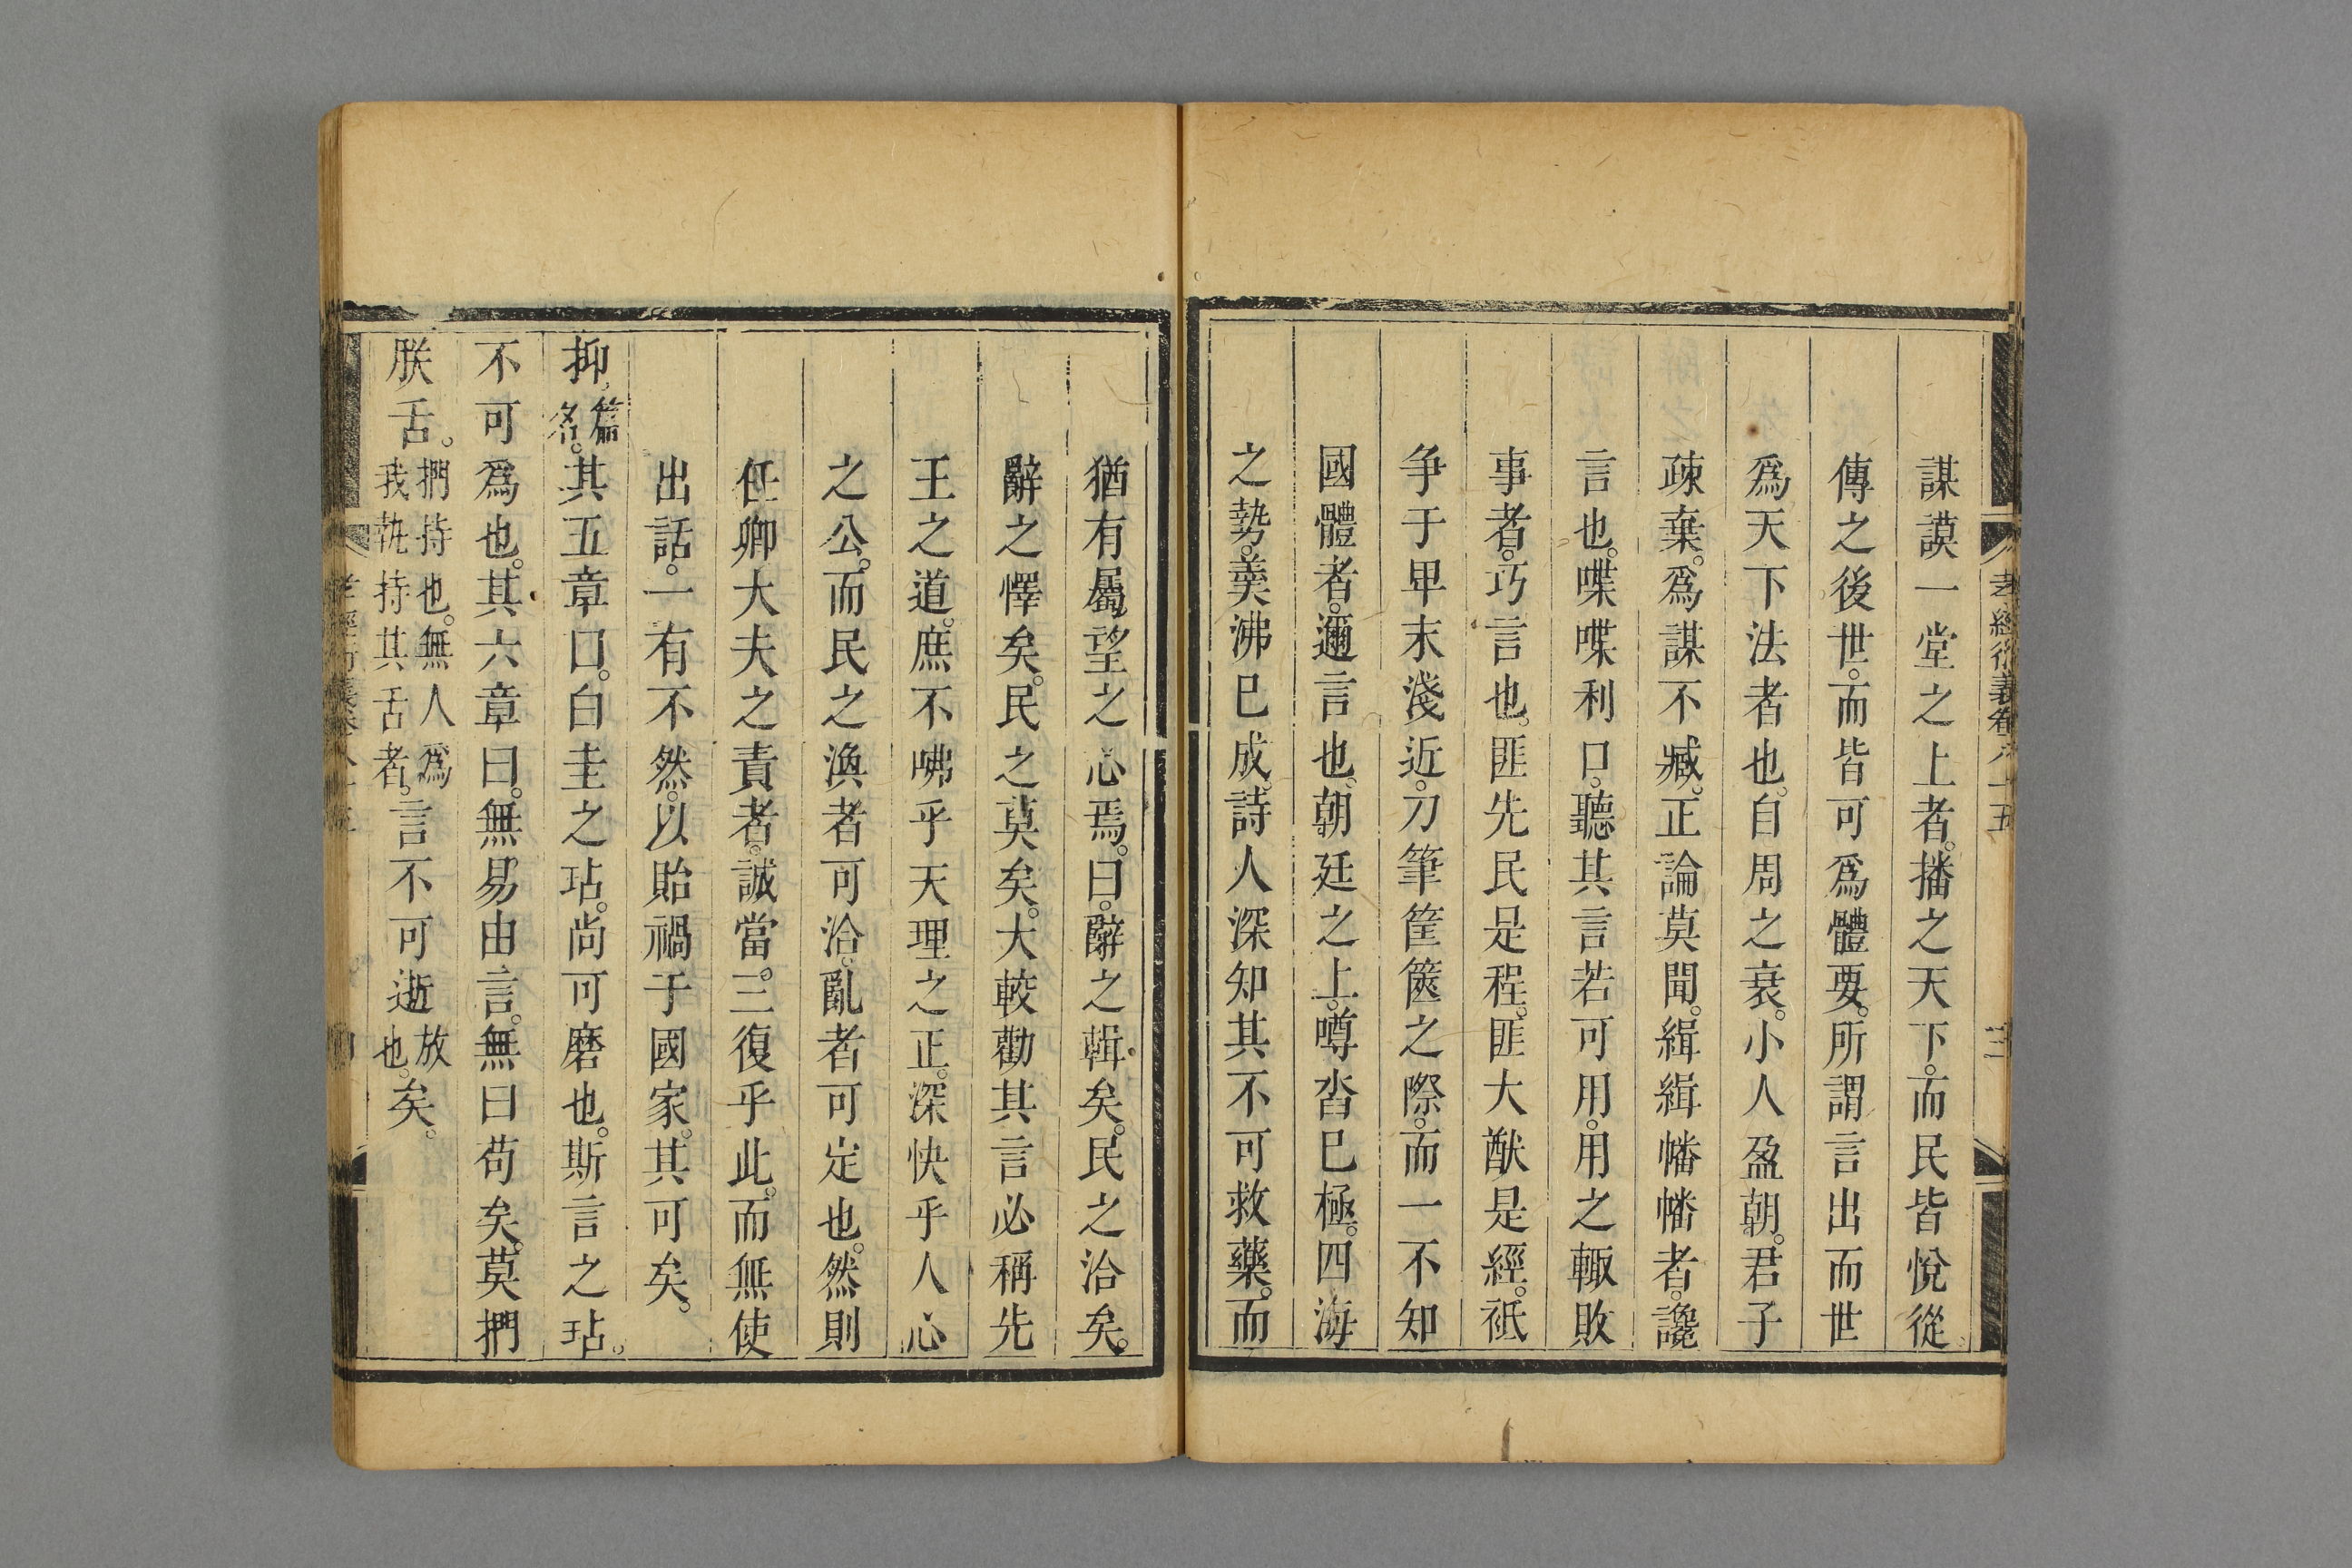 孝經衍義卷八十五
三
謀謨一堂之上者。播之天下。而民皆悅從
傳之後世。而皆可爲體要。所謂言出而世
爲天下法者也。自周之衰。小人盈朝。君子
疎棄。爲謀不臧。正論莫聞。緝緝幡幡者。讒
言也。喋喋利口。聽其言若可用。用之輙敗
事者。巧言也。匪先民是程。匪大猷是經。祗
争于卑末淺近。刀筆筐篋之際。而一不知
國體者。邇言也。朝廷之上。噂沓巳極。四海
之勢。羹沸巳成。詩人深知其不可救藥。而
猶有屬望之心焉。曰。辭之輯矣。民之洽矣。
辭之懌矣。民之莫矣。大較勸其言必稱先
王之道。庶不咈乎天理之正。深快乎人心
之公。而民之渙者可洽。亂者可定也。然則
任卿大夫之責者。誠當。三復乎此。而無使
出話。一有不然。以貽禍于國家。其可矣。
抑。篇名。其五章曰。白圭之玷。尚可磨也。斯言之玷。
不可爲也。其六章曰。無易由言。無曰苟矣。莫捫
朕舌。捫持也。無人爲我執持其舌者。言不可逝放也。矣。